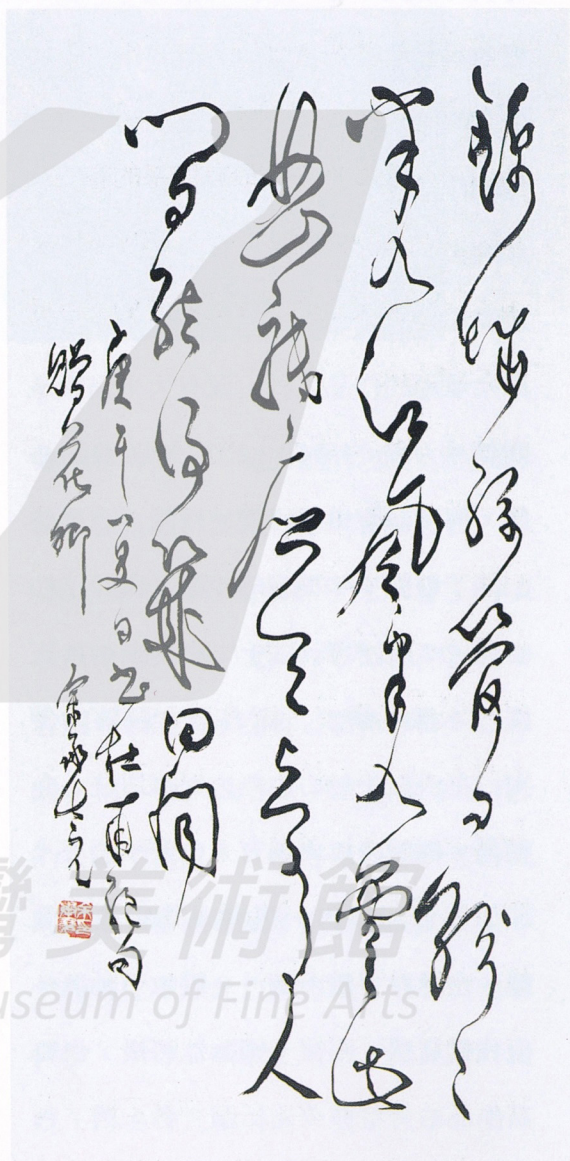 錦城絲管日紛〻
半入江風半入雲此
曲祇應天上有人
間能得幾回聞
庚午夏日書杜甫絕句
贈花卿
灣美術館
useum of Fine Arts